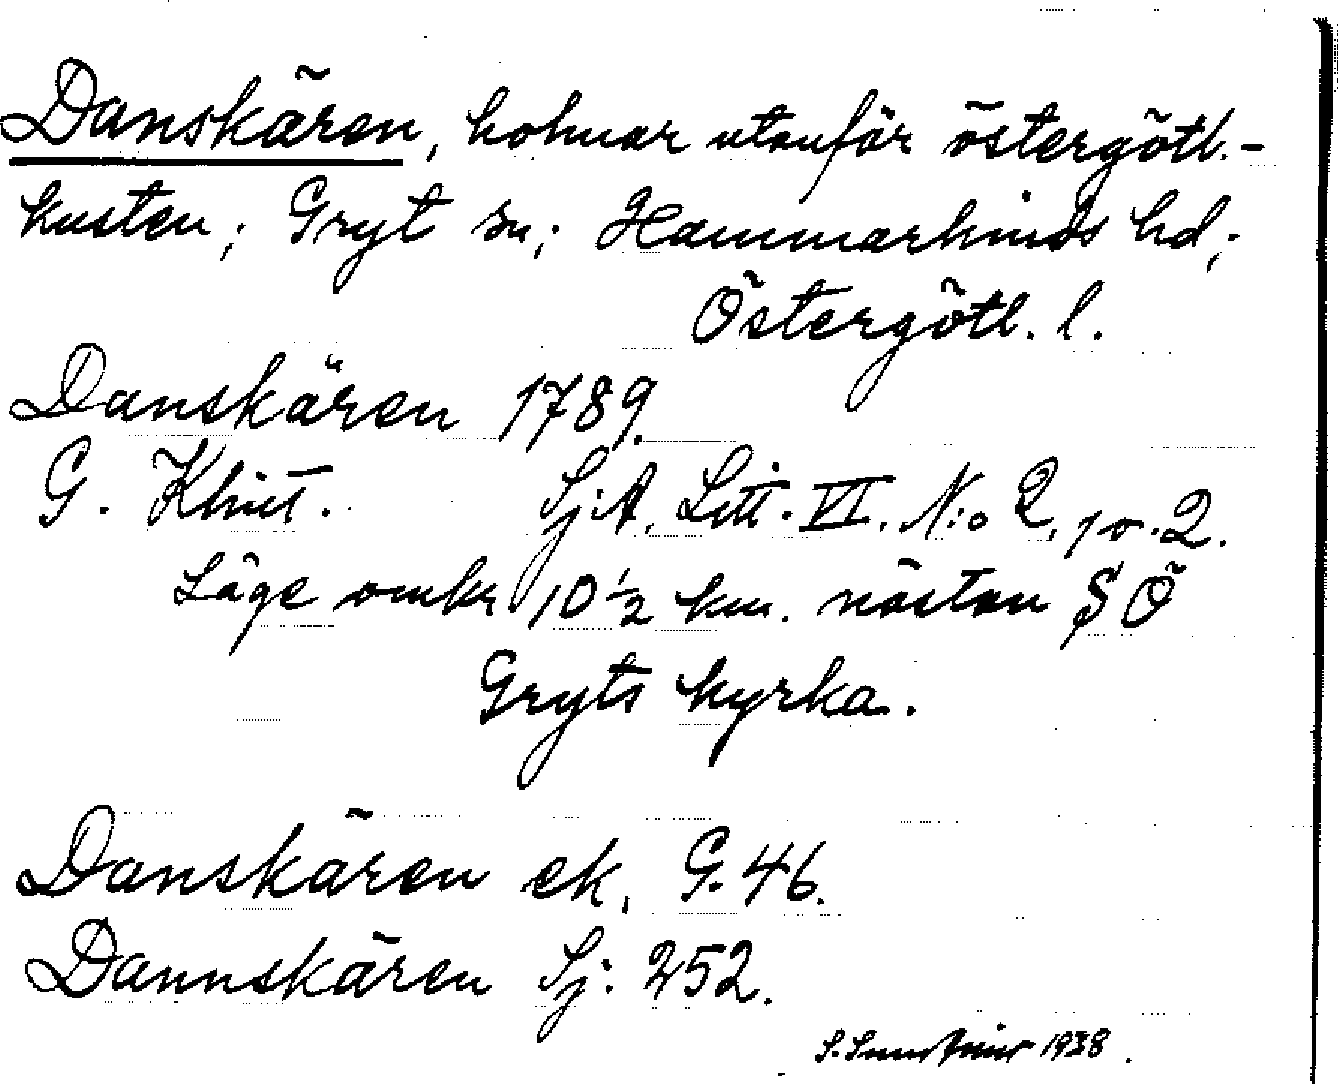 Danskären, holmar utanför östergötl.-
kusten; Gryt sn; Hammarkinds hd;
Östergötl. l.
Danskären 1789.
G. Klint. Sj:A. Litt. VI. N:o 2, p. 2.
Läge omkr 10 1/2 km. nästan SÖ
Gryts kyrka.
Danskären ek. G. 46.
Dannskären Sj: 252.
S. 1938.